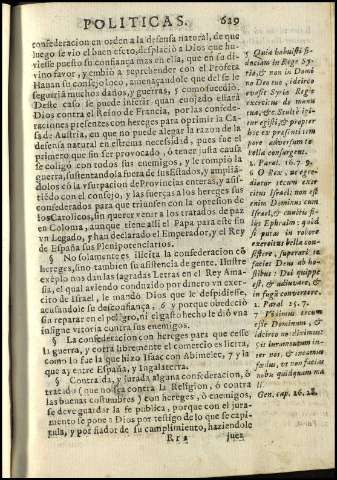 POLITICAS. 629
confederacion en orden a la defensa natural, de que
luego se vio el buen efeto, desplació a Dios que hu-
viesse puesto su confiança mas en ella, que en su di-
vino favor, y embió a reprehender con el Profeta
Hanan su consejo loco, amenaçandole que del se le
seguiriā muchos daños, y guerras, 5 como sucedió.
Deste caso se puede inferir quan enojado estará
Dios contra el Reino de Francia, por las confede-
raciones presentes con hereges para oprimir la Ca-
sa de Austria, en que no puede alegar la razon de la
defensa natural en estrema necessidad, pues fue el
primero que sin ser provocado, ó tener justa causa
se coligó con todos sus enemigos, y le rompió la
guerra, sustentandola fuera de sus Estados, y ampliā-
dolos cō la vsurpacion de Provincias enteras, y assis-
tiendo con el consejo, y las fuerças a los hereges sus
confederados para que triunfen con la opresion de
los Catolicos, sin querer venir a los tratados de paz
en Colonia, aunque tiene alli el Papa para este fin
vn Legado, y han declarado el Emperador, y el Rey
de España sus Plenipotenciarios.
§ No solamente es ilicita la confederacion cō
hereges, sino tambien su asistencia de gente. Ilustre
exemplo nos dan las sagradas Letras en el Rey Ama-
sia, el qual aviendo conducido por dinero vn exer-
cito de Israel, le mandó Dios que le despidiesse,
acusandole su desconfiança, 6 y porque obedeció
sin reparar en el peligro, ni el gasto hecho le dió vna
insigne vitoria contra sus enemigos.
§ La confederacion con hereges para que cesse
la guerra, y corra libremente el comercio es licita,
como lo fue la que hizo Isaac con Abimelec, 7 y la
que ay entre España, y Inglaterra.
§ Contraida, y jurada alguna confederacion, ó
tratado (que no sea contra la Religion, ó contra
las buenas costumbres) con hereges, ó enemigos,
se deve guardar la fe publica, porque con el jura-
mento se pone a Dios por testigo de lo que se capi-
tula, y por fiador de su cumplimiento, haziendole
Rr 2 juez
5 Quia habuisti fi-
duciam in Rege Sy-
riæ, & non in Domi-
no Deo tuo, idcirco
evasit Syriæ Regis
exercitus de manu
tua, & Stultè igi-
tur egisti, & propter
hoc ex præsenti tem-
pore adversum te
bella consurgent.
2. Paral. 16. 7. 9.
6 O Rex, ne egre-
diatur tecum exer-
citus Israel: non est
enim Dominus cum
Israel, & cunctis fi-
liis Ephraim: quod
si putas in robore
exercitus bella con-
sistere, superari te
faciet Deus ab ho-
stibus: Dei quippe
est, & adiuvare, &
in fugā convertere.
2. Paral. 25. 7.
7 Vidimus tecum
esse Dominum, &
idcirco nos diximus:
Sit iuramentum in-
ter nos, & ineamus
fœdus, ut non facias
nobis quidquam ma-
li.
Gen. cap. 26. 28.